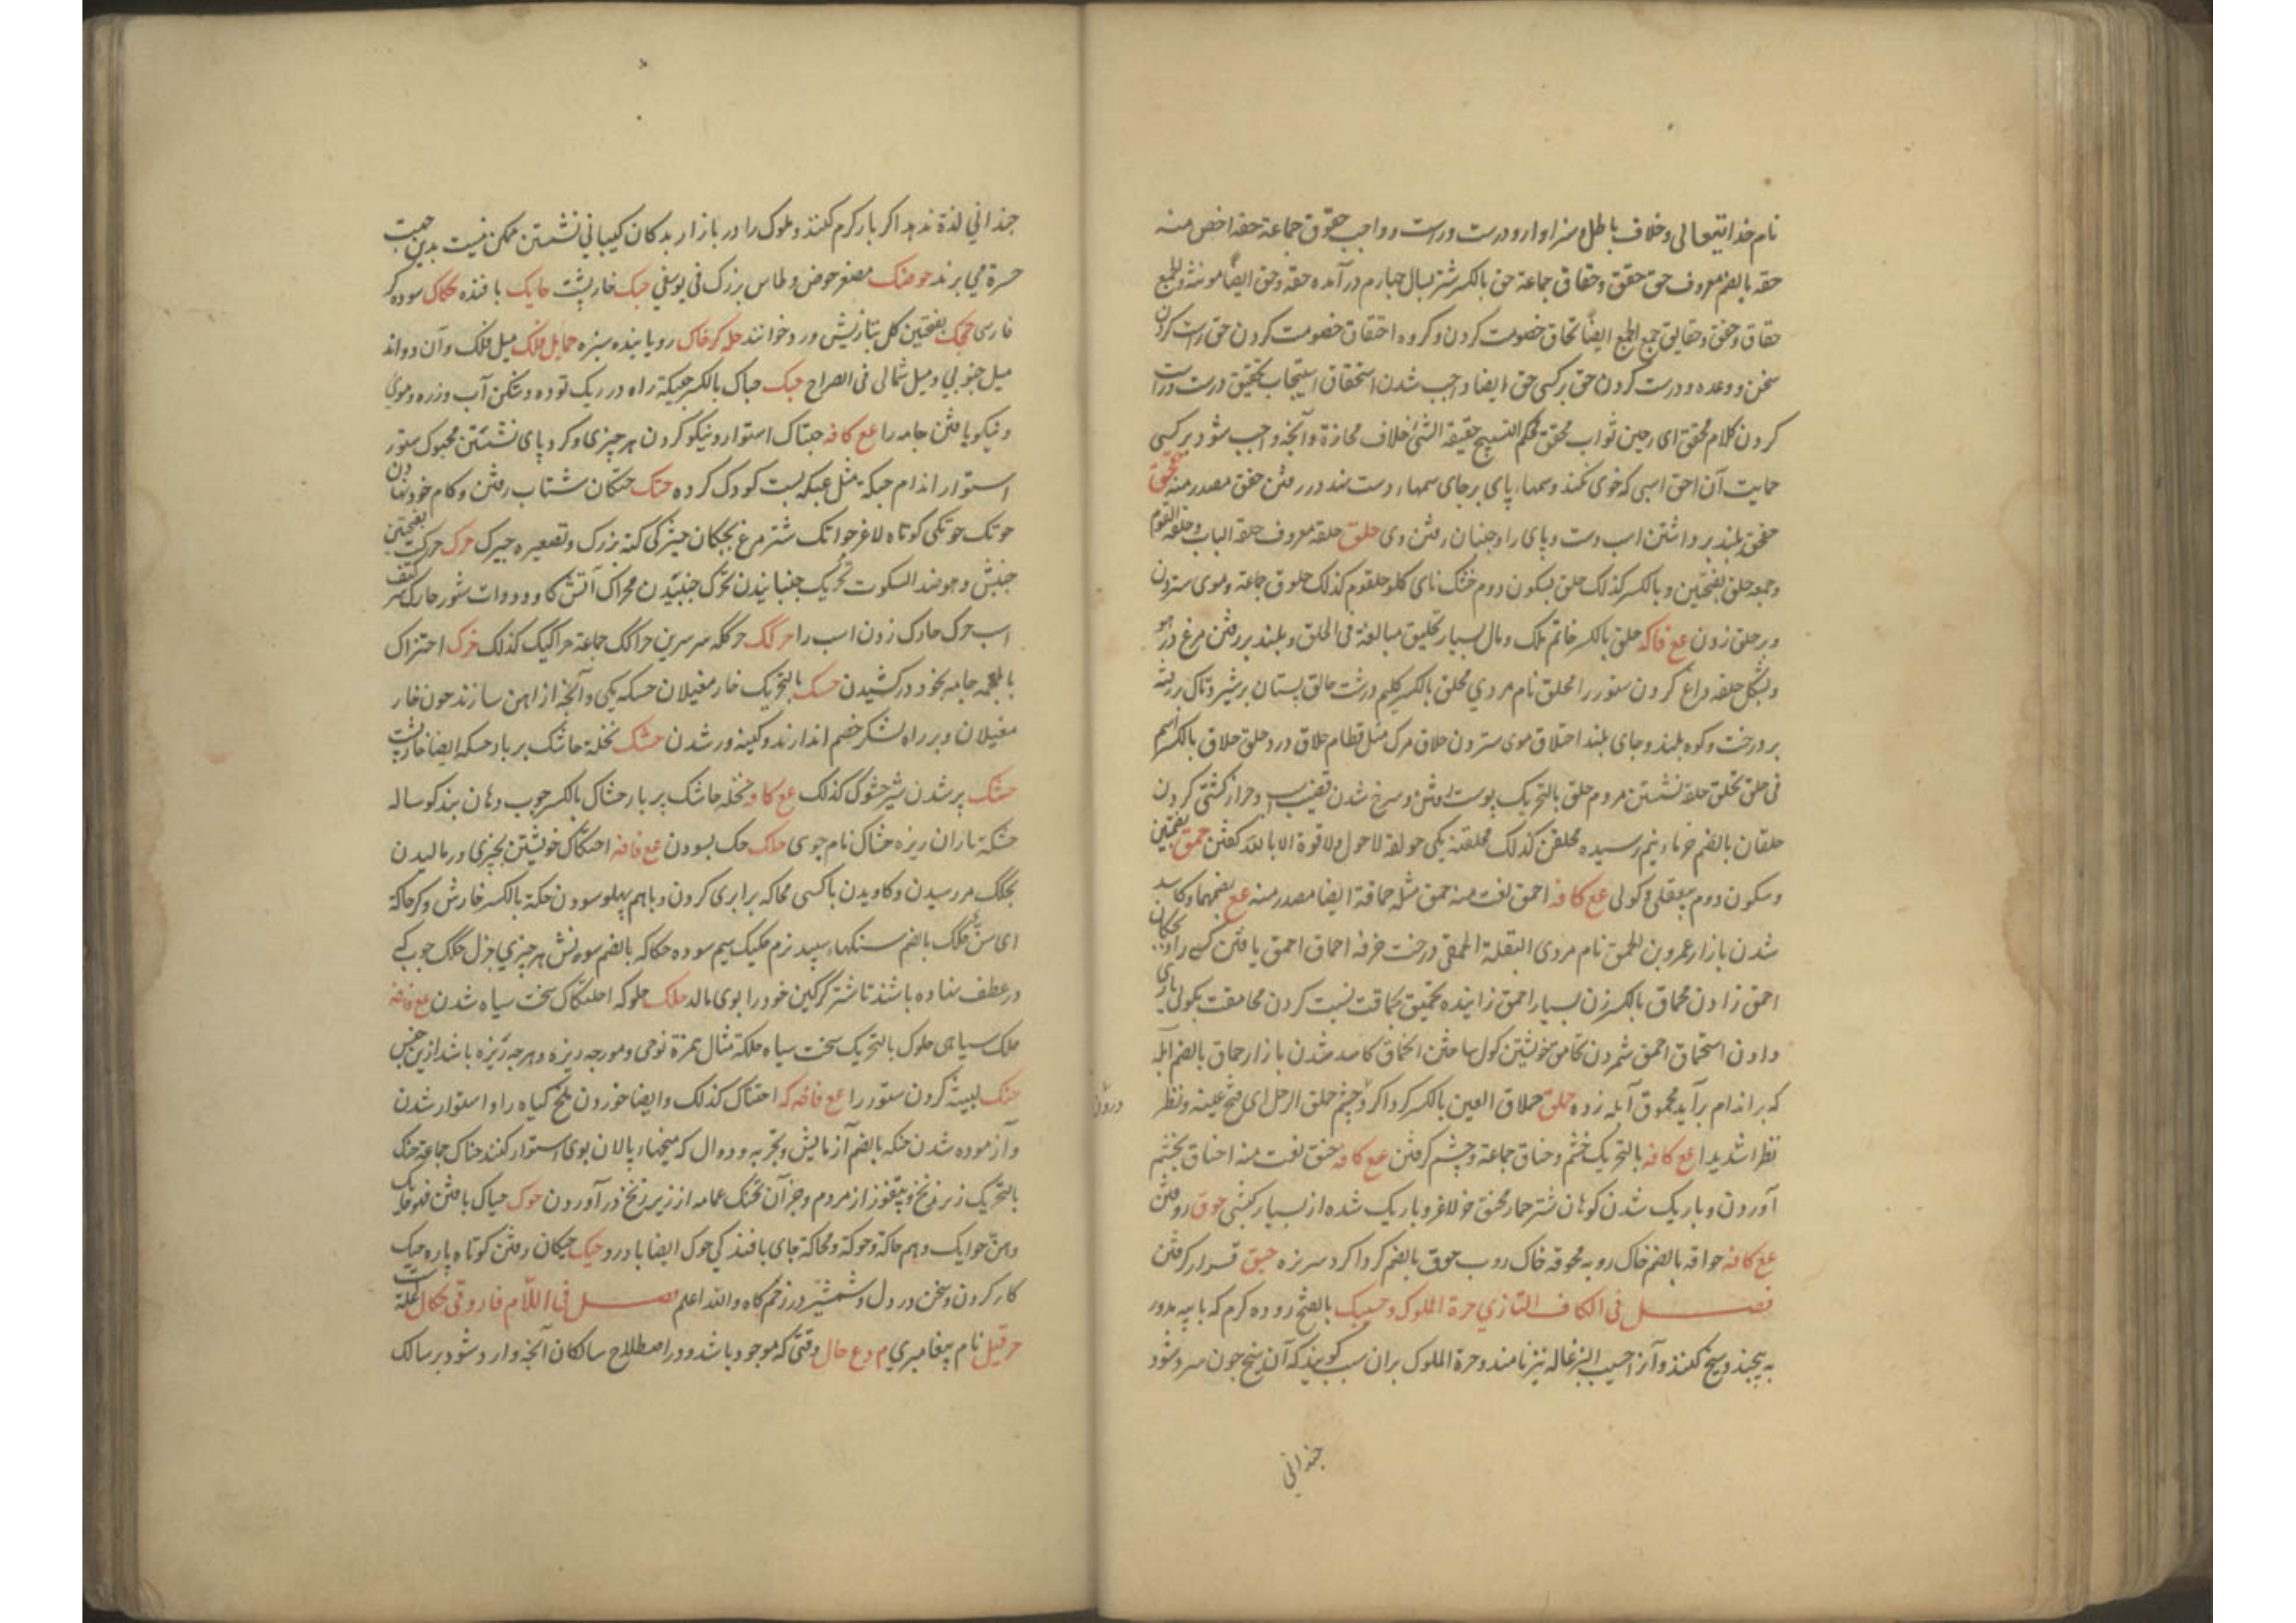 نام خدایتعالی و خلاف باطل و سزاوار و درست و راست و واجب حقوق جماعة حقه اخص منه
حقه بالضم معروف حق حقق و حقاق جماعة حق بالکسر شتر بسال چهارم در آمده حقه و حق ایضا مونثه و الجمع
حقاق و حقق و حقایق جمع الجمع ایضا تحاق خصومت کردن و کروه احتقاق خصومت کردن حق راست کردن
سخن و وعده و درست کردن حق بر کسی حق ایضا واجب شدن استحقاق استیجاب تحقیق درست و راست
کردن کلام محقق ای رصین ثواب محقق محکم النسیج حقیقة الشی خلاف مجازة و آنچه واجب شود بر کسی
حمایت آن احق اسبی که خوی نکند و سمهاء پای بر جای سمهاء دست نهد در رفتن حقق مصدر منه
بلند برداشتن اسب دست و پای را و جنبان رفتن وی حلق حلقه معروف حلقة الباب و حلقة القوم
و جمعه حلق بفتحین و بالکسر کذلک حلق بسکون دوم خشک نای کلو حلقوم کذلک حلوق جماعة و موی ستردن
و بر حلق زدن عع فاکه حلق بالکسر خاتم ملک و مال بسیار تحلیق مبالغة فی الحلق و بلند بر رفتن مرغ در هو
و بشکل حلقه داغ کردن ستور را محلق نام مردی محلق بالکسر کلیم درشت حالق پستان پر شیر و تاک بر رفته
بر درخت و کوه بلند و جای بلند احتلاق موی ستردن حلاق مرک مثل قطام حلاق درد حلق حلاق بالکسر اسم
فی حلق تحلق حلقه نشستن مردم حلق بالتحریک پوست رفتن و سرخ شدن قضیب و خر از کشنی کردن
حلقان بالضم خرماء نیم رسیده محلقن کذلک محلقنة یکی حولقة لاحول ولا قوة الا بالله کفتن حمق بضمتین
و سکون دوم بیعقلی و کولی عع کافه احمق لغت منه حمق مثله حماقة ایضا مصدر منه عع بضمهما و کاسد
شدن بازار عمرو بن الحمق نام مردی البقلة الحمقی درخت خرفه احماق احمق یافتن کسی را و
احمق زادن محماق بالکسر زن بسیار احمق زاینده تحمیق بحماقت نسبت کردن محامقت بکولی یاری
دادن استحماق احمق شمردن تحامق خویشتن کول ساختن انحماق کاسد شدن بازار حماق بالضم آبله
که بر اندام برآید محموق آبله زده حملق حملاق العین بالکسر کرداکرد چشم حملق الرجل ای فتح عینیه و نظر
نظرا شدیدا عع کافه بالتحریک خشم و حناق جماعة و خشم کرفتن عع کافه حنق لغت منه احناق بخشم
آوردن و باریک شدن کوهان شتر حمار محنق خر لاغر و باریک شده از بسیار کشنی حوق روفتن
عع کافه حواقه بالضم خاک روبه محوقه خاک روب حوق بالضم کرداکرد سر نره حیق قرار کرفتن
فصل فی الکاف التازی حرة الملوک و حسیبک بالفتح روده کرم که با پیه مدور
به پیچند و سیخ کنند و آنرا حسیب البزغاله نیز نامند و حرة الملوک بران سبب کویند که آن سیخ چون سرد شود
چندانی

چندانی لذة ندهد اکر بار کرم کنند و ملوک را در بازار بدکان کبابی نشستن ممکن نیست بدین جهت
حسرة می برند حوضک مصغر حوض و طاس بزرک فی یوسفی حبک خارپشت حایک بافنده حکاک سوده کر
فارسی بفتحتین کل بتازیش ورد خوانند حله کر خاک رویاننده سبزه حمایل فلک میل فلک و آن دواند
میل جنوبی و میل شمالی فی الصراح حبک حباک بالکسر حبیکة راه در ریک توده و شکن آب و زره و موی
و نیکو بافتن جامه را عع کافه احتباک استوار و نیکو کردن هر چیزی و کرد پای نشستن محبوک ستور
استوار اندام حبکة مثل عبکة بست کودک کرده حتک حتکان شتاب رفتن و کام خرد نهادن
حوتک حوتکی کوتاه لاغر حواتک شتر مرغ بچکان حرک حرکت بفتحتین
جنبش و هو ضد السکوت تحریک جنبانیدن تحرک جنبیدن محراک آتش کاو و دوات شور حارک سر کتف
اسب حرک حارک زدن اسب را حرکک حرککه سر سرین حراکک جماعة حراکیک کذلک حزک احتزاک
بالمعجمه جامه بخود در کشیدن حسک بالتحریک خار مغیلان حسکه یکی و آنچه از آهن سازند چون خار
مغیلان و بر راه لشکر خصم اندازند و کینه ور شدن حشک نخلة حاشک پر بار حسکه ایضا خارپشت
حشک پر شدن شیر حشوک کذلک عع کافه نخله حاشک پر بار حشاک بالکسر چوب دهان بند کوساله
حشکة باران ریزه حشاک نام جوی حکاک حک بسودن عع فافه احتکاک خویشتن بچیزی در مالیدن
تحکک بر رسیدن و کاویدن با کسی محاکه برابری کردن و با هم پهلو سودن حکة بالکسر خارش و کر حاکة
ای سن حکک بالضم سنکهاء سپید نرم حکیک سم سوده حکاکه بالضم سونش هر چیزی جزل حکک چوبکی
در عطف نهاده باشند تا شتر کرکین خود را بوی مالد حلک حلوکه احلنکاک سخت سیاه شدن عع فافه
حلک سیاهی حلوک بالتحریک سخت سیاه حلکة مثال همزة نوعی و مورچه ریزه و هر چه ریزه باشد ازین جنس
حنک لبیشه کردن ستور را عع فافه که احتناک کذلک و ایضا خوردن ملخ کیاه را و استوار شدن
و آزموده شدن حنکه بالضم آزمایش و تجربه و دوال که میخهاء پالان بوی استوار کنند حناک جماعة حنک
بالتحریک زیر زنخ و پتفوز از مردم و جز آن تحنک عمامه از زیر زنخ در آوردن حوک حیاک بافتن فهو حایک
و هن حوایک و هم حاکة و حوکة و محاکة جای بافندکی حوک ایضا بادرو حیک حیکان رفتن کوتاه پاره حیک
کار کردن و سخن در دل و شمشیر در زخم کاه و الله اعلم فصل فی اللام فاروقی حکال
حرقیل نام پیغامبری م وع حال وقتی که موجود باشد و در اصطلاح سالکان آنچه وارد شود بر سالک